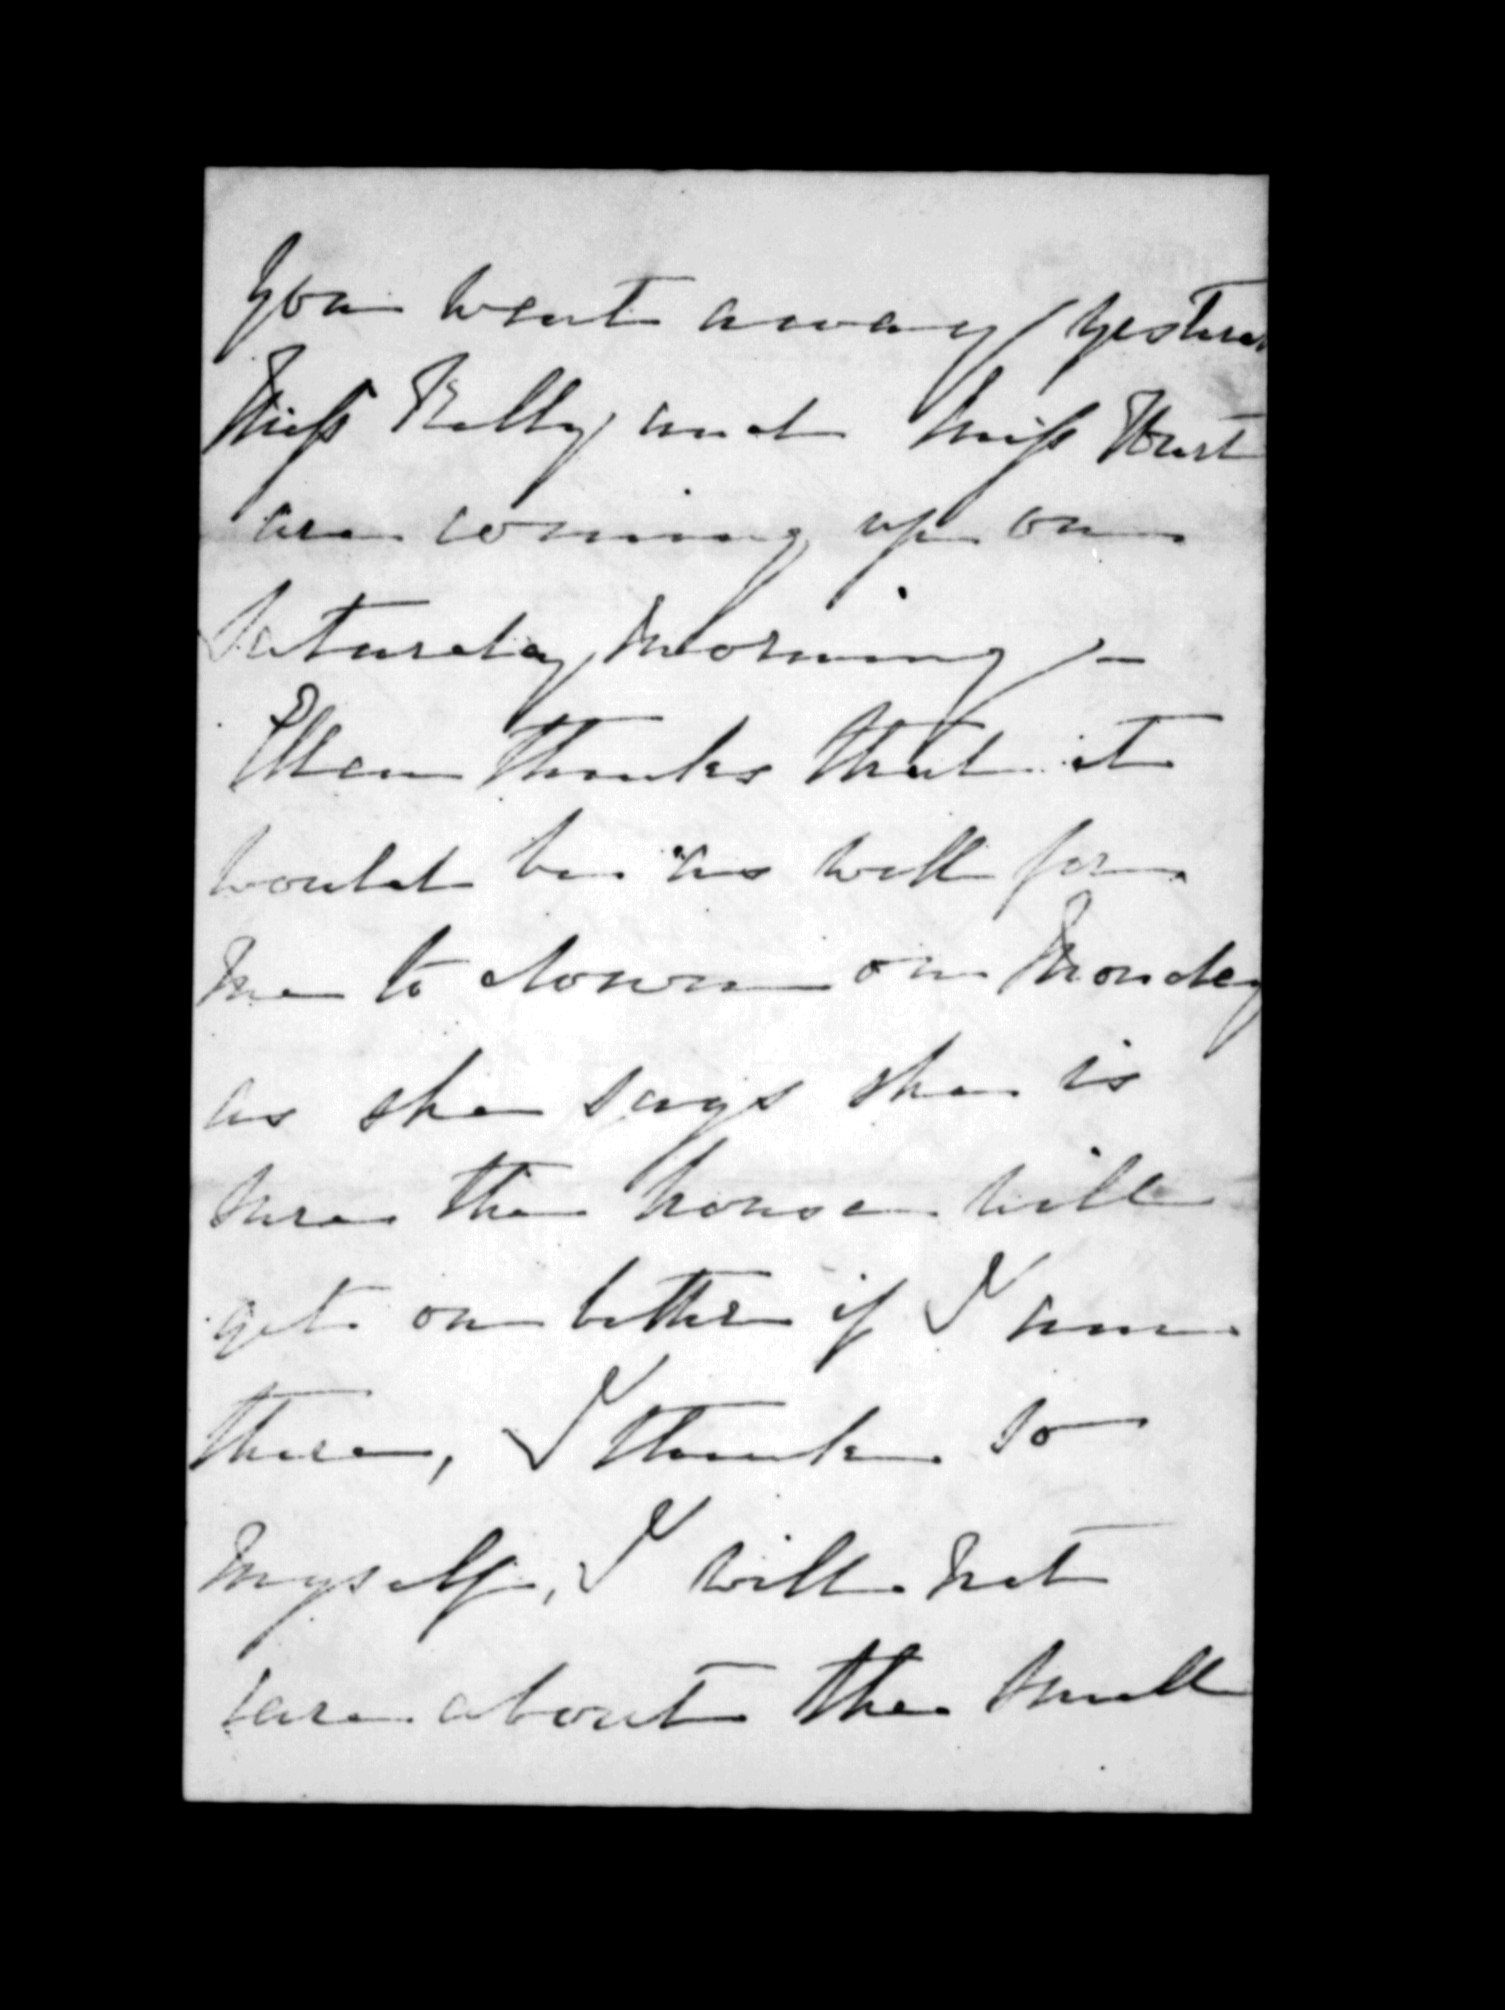 you went away yester
Miss Kelly and Miss Hurst
are coming up on
Saturday Morning -
Ellen thinks that it
would be as well for
me to down on Monday
as she says she is
sure the house will
get on better if I am
there, I think so
myself, I will not
care about the small